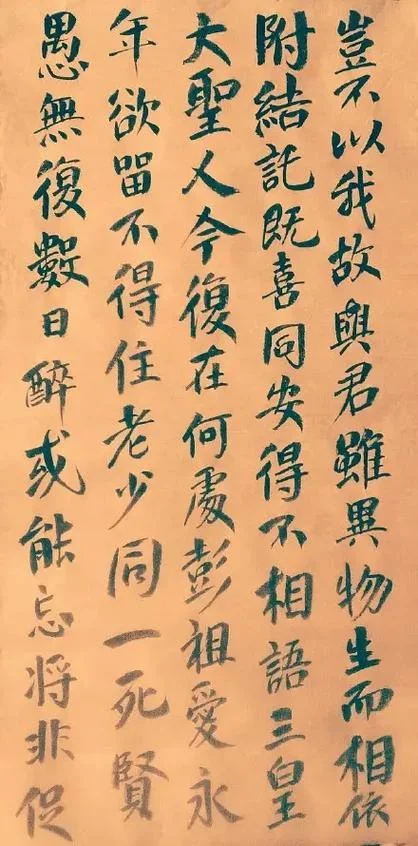 豈不以我故與君雖異物生而相依
附結託既喜同安得不相語三皇
大聖人今復在何處彭祖愛永
年欲留不得住老少同一死賢
愚無復數日醉或能忘将非促